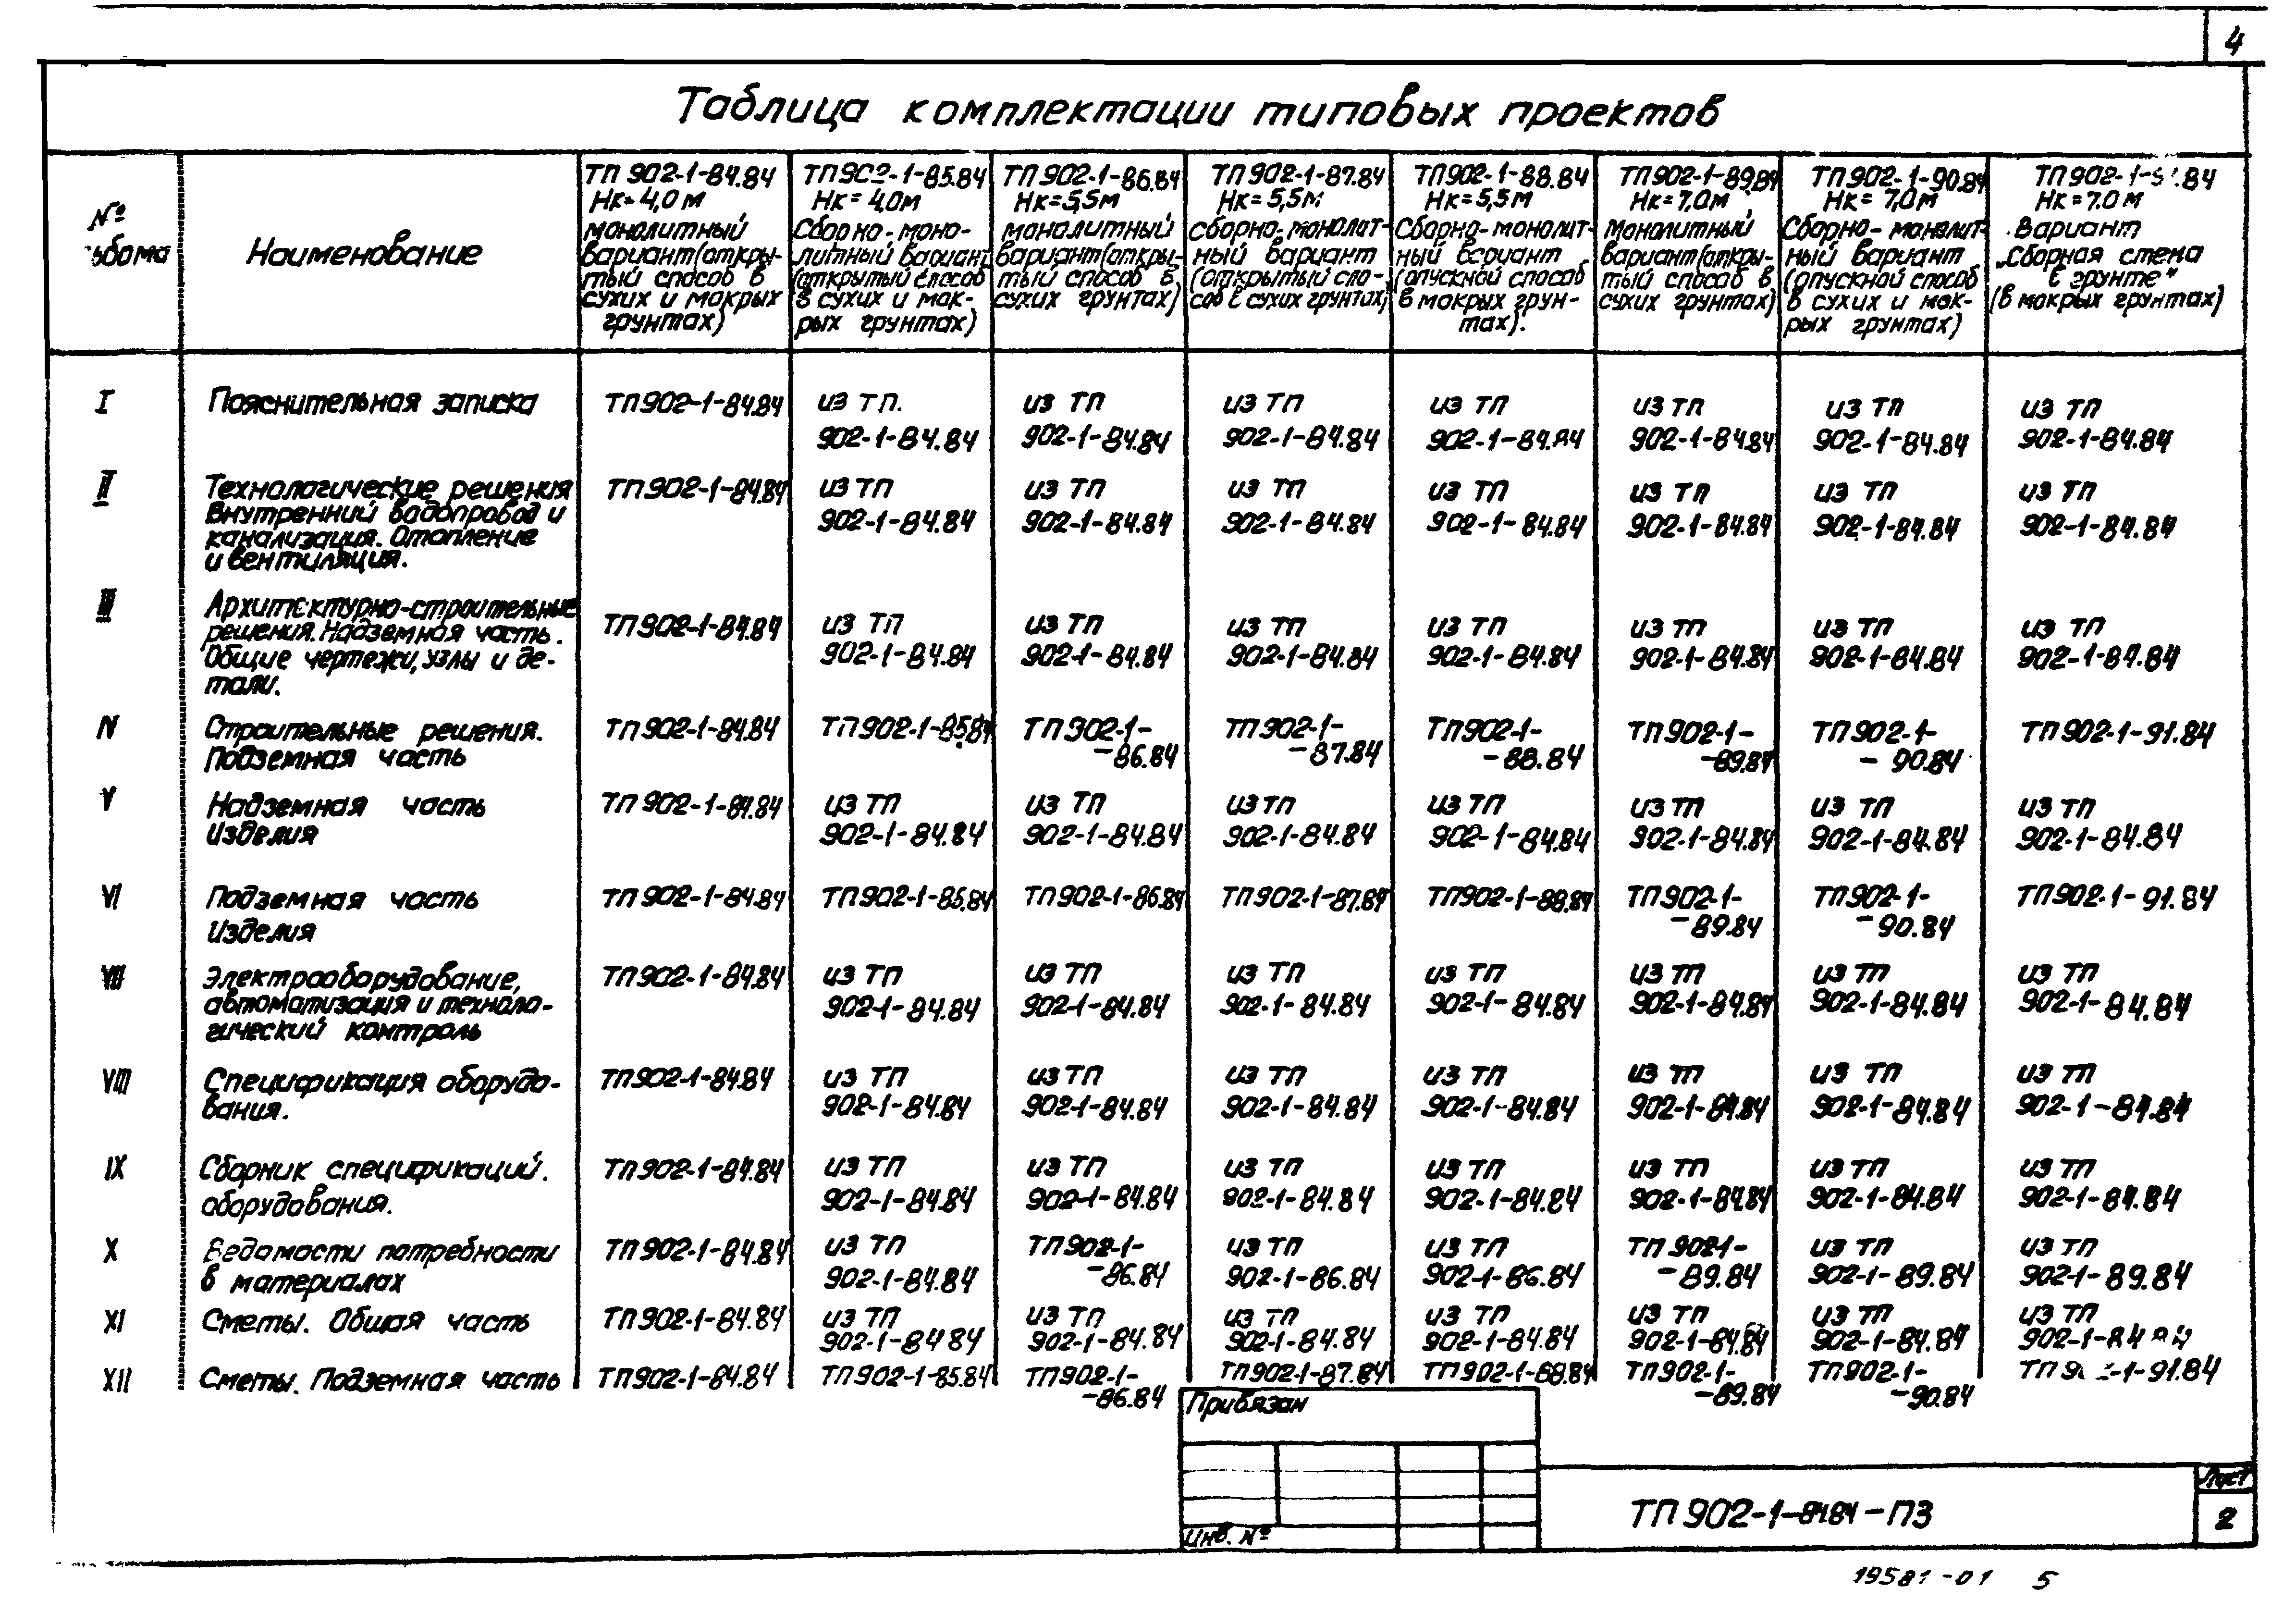 4
Таблица комплектации типовых проектов
№
альбома
Наименование
ТП 902-1-84.84
Нк=4,0 м
монолитный
вариант(откры-
тый способ в
сухих и мокрых
грунтах)
ТП902-1-85.84
Нк= 4,0м
Сборно-моно-
литный вариант
(открытый способ
в сухих и мок-
рых грунтах)
ТП902-1-86.84
Нк=5,5м
монолитный
вариант(откры-
тый способ в
сухих грунтах)
ТП902-1-87.84
Нк= 5,5м
сборно-монолит-
ный вариант
(открытый спо-
соб в сухих грунтах)
ТП902-1-88.84
Нк=5,5м
Сборно-монолит-
ный вариант
(опускной способ
в мокрых грун-
тах).
ТП902-1-89.84
Нк=7,0м
Монолитный
вариант(откры-
тый способ в
сухих грунтах)
ТП902-1-90.84
Нк= 7,0м
Сборно-монолит-
ный вариант
(опускной способ
в сухих и мок-
рых грунтах)
ТП902-1-91.84
Нк=7.0 м
Вариант
„Сборная стена
в грунте"
(в мокрых грунтах)
I Пояснительная записка ТП902-1-84.84 из ТП. из ТП из ТП из ТП из ТП из ТП из ТП
902-1-84.84 902-1-84.84 902-1-84.84 902-1-84.84 902-1-84.84 902-1-84.84 902-1-84.84
II Технологические решения ТП902-1-84.84 из ТП из ТП из ТП из ТП из ТП из ТП из ТП
Внутренний водопровод и 902-1-84.84 902-1-84.84 902-1-84.84 902-1-84.84 902-1-84.84 902-1-84.84 902-1-84.84
канализация. Отопление
и вентиляция.
III Архитектурно-строительные
решения. Надземная часть. ТП902-1-84.84 из ТП из ТП из ТП из ТП из ТП из ТП из ТП
Общие чертежи, узлы и де- 902-1-84.84 902-1-84.84 902-1-84.84 902-1-84.84 902-1-84.84 902-1-84.84 902-1-84.84
тали.
IV Строительные решения. ТП902-1-84.84 ТП902-1-85.84 ТП902-1- ТП902-1- ТП902-1- ТП902-1- ТП902-1- ТП902-1-91.84
Подземная часть -86.84 -87.84 -88.84 -89.84 - 90.84
V Надземная часть ТП902-1-84.84 из ТП из ТП из ТП из ТП из ТП из ТП из ТП
Изделия 902-1-84.84 902-1-84.84 902-1-84.84 902-1-84.84 902-1-84.84 902-1-84.84 902-1-84.84
VI Подземная часть ТП902-1-84.84 ТП902-1-85.84 ТП902-1-86.84 ТП902-1-87.84 ТП902-1-88.84 ТП902-1- ТП902-1- ТП902-1-91.84
Изделия -89.84 -90.84
VII Электрооборудование, ТП902-1-84.84 из ТП из ТП из ТП из ТП из ТП из ТП из ТП
автоматизация и техноло- 902-1-84.84 902-1-84.84 902-1-84.84 902-1-84.84 902-1-84.84 902-1-84.84 902-1-84.84
гический контроль
VIII Спецификация оборудо- ТП902-1-84.84 из ТП из ТП из ТП из ТП из ТП из ТП из ТП
вания. 902-1-84.84 902-1-84.84 902-1-84.84 902-1-84.84 902-1-84.84 902-1-84.84 902-1-84.84
IX Сборник спецификаций. ТП902-1-84.84 из ТП из ТП из ТП из ТП из ТП из ТП из ТП
оборудования. 902-1-84.84 902-1-84.84 902-1-84.84 902-1-84.84 902-1-84.84 902-1-84.84 902-1-84.84
X Ведомости потребности ТП902-1-84.84 из ТП ТП902-1- из ТП из ТП ТП 902-1- из ТП из ТП
в материалах 902-1-84.84 -86.84 902-1-86.84 902-1-86.84 -89.84 902-1-89.84 902-1-89.84
XI Сметы. Общая часть ТП902-1-84.84 из ТП из ТП из ТП из ТП из ТП из ТП из ТП
902-1-84 84 902-1-84.84 902-1-84.84 902-1-84.84 902-1-84.84 902-1-84.84 902-1-84.84
XII Сметы. Подземная часть ТП902-1-84.84 ТП902-1-85.84 ТП902-1- ТП902-1-87.84 ТП902-1-88.84 ТП902-1- ТП902-1- ТП902-1-91.84
-86.84 -89.84 -90.84
Привязан
Инв. №
ТП 902-1-84.84-ПЗ
Лист
2
19581-01 5